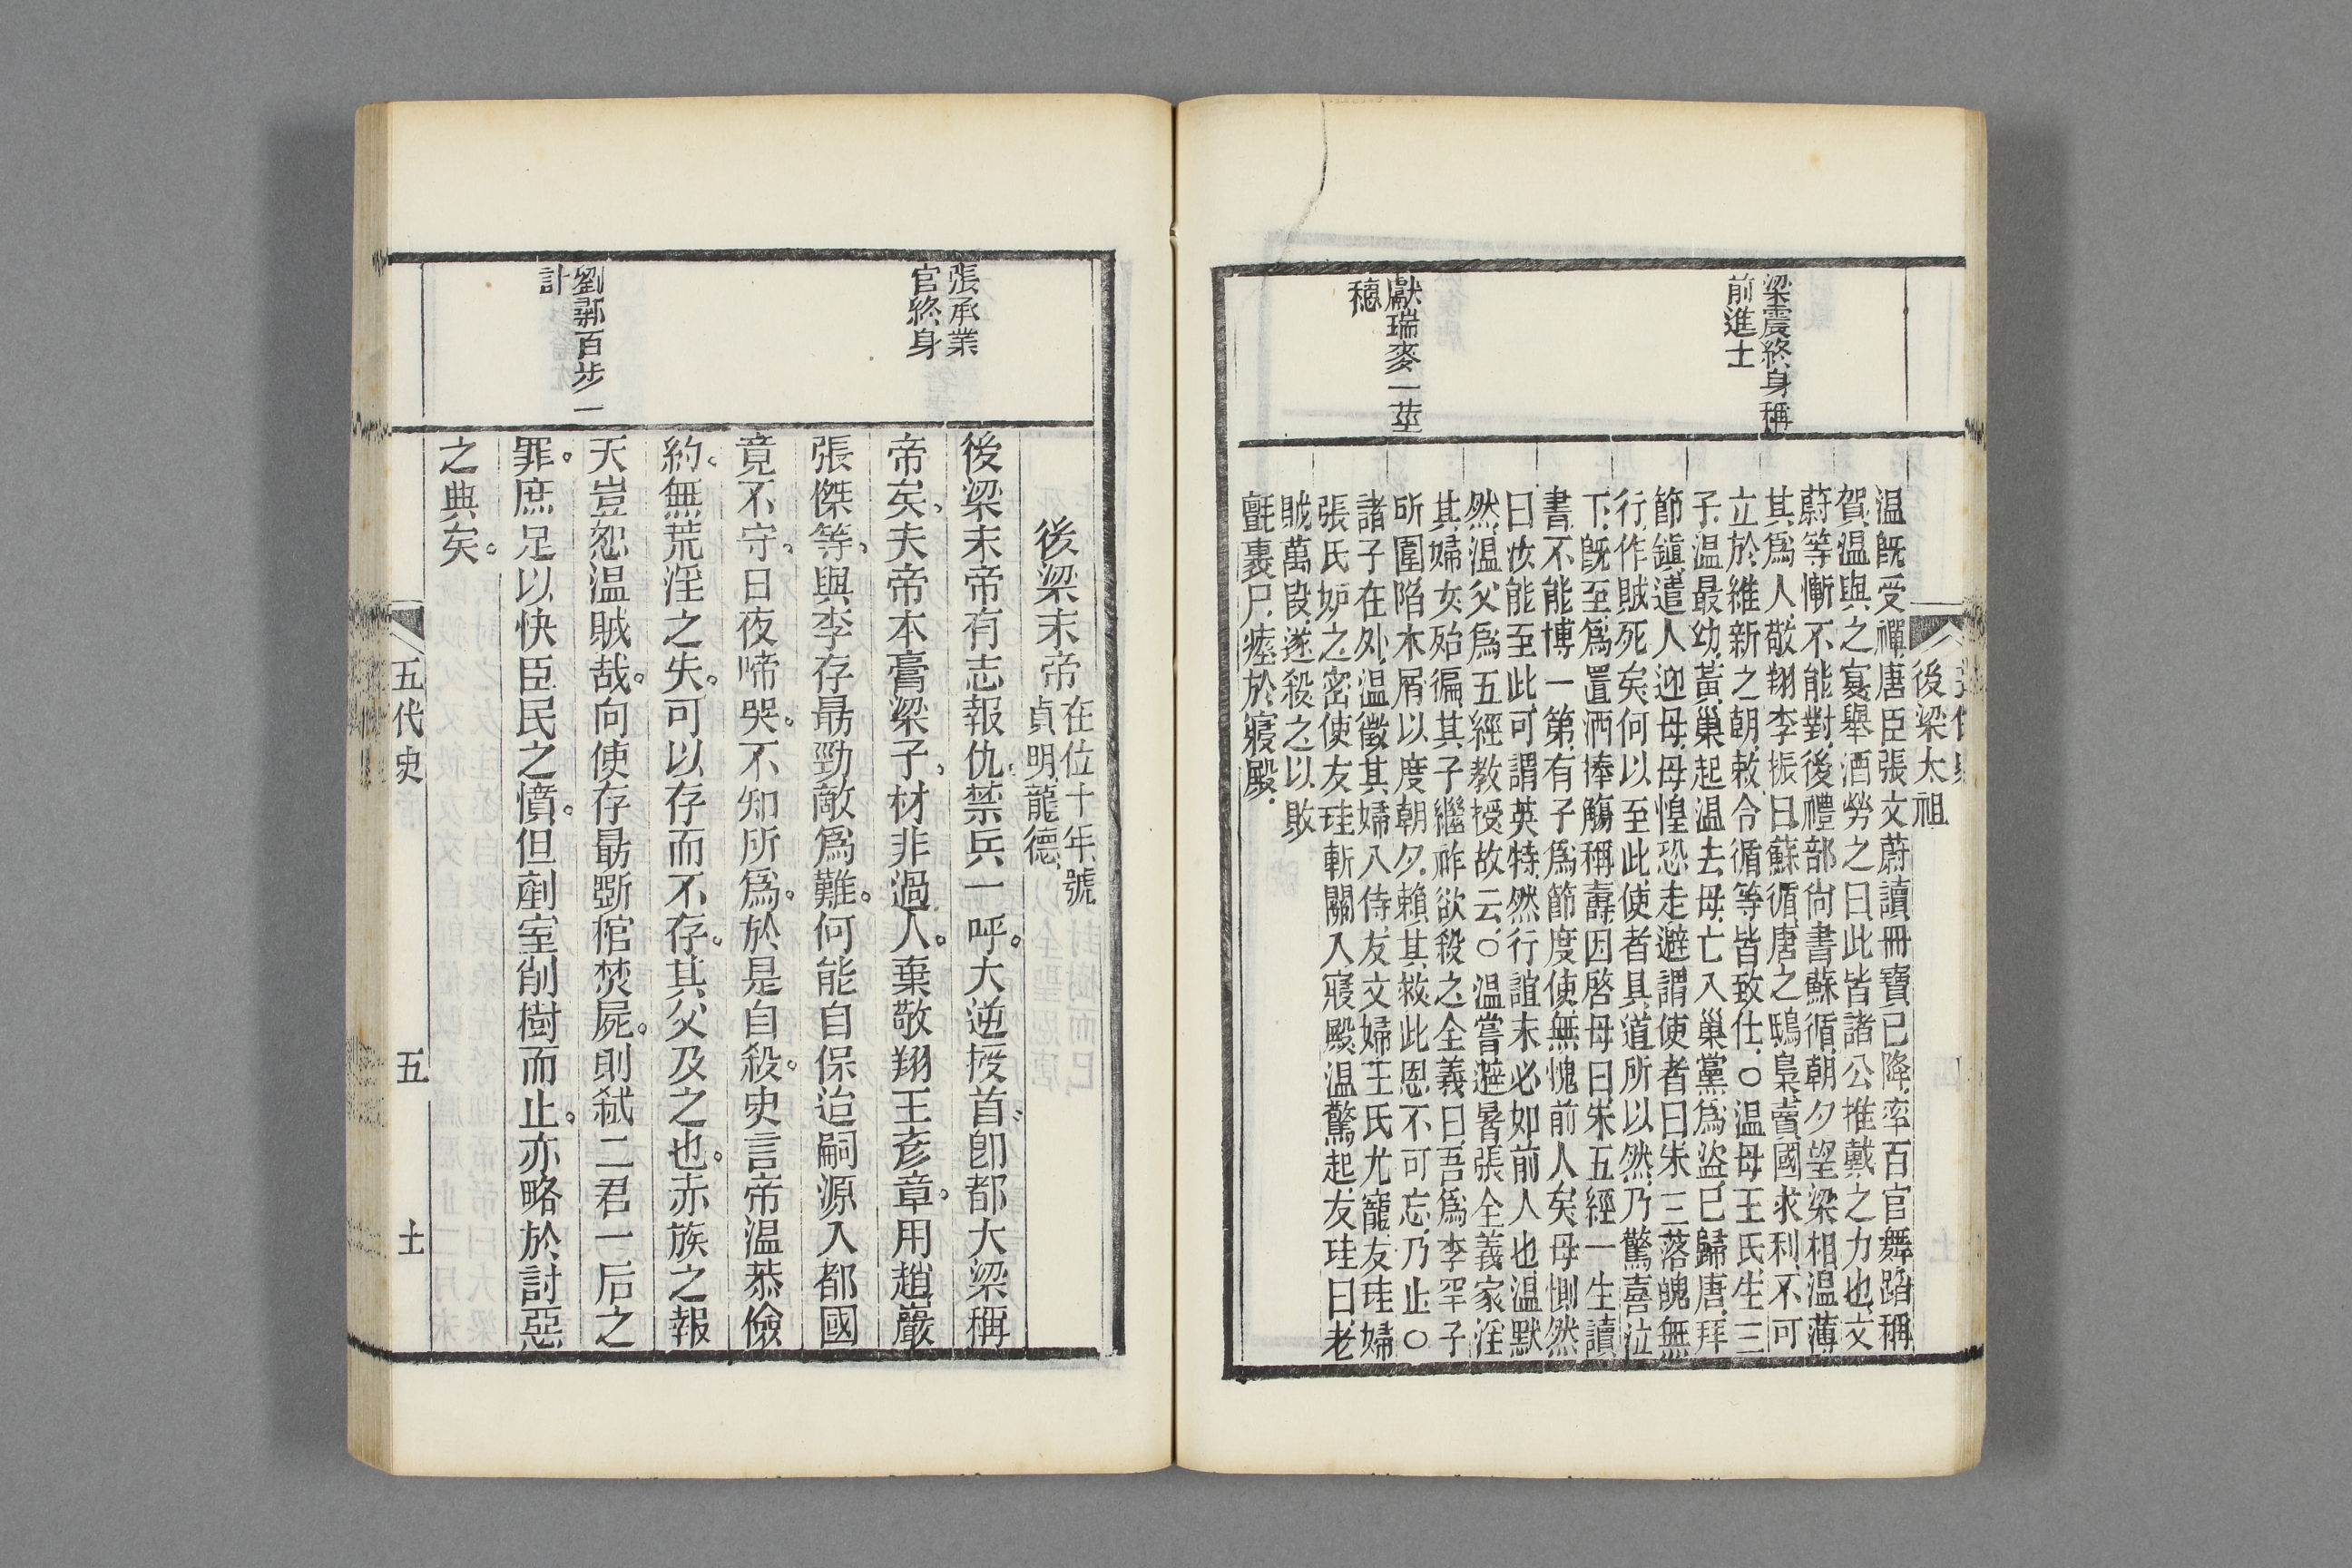 後梁太祖
梁震終身稱
前進士
獻瑞麥一莖
穗
温既受禪唐臣張文蔚讀冊寶已降率百官舞蹈稱
賀温與之宴舉酒勞之曰此皆諸公推戴之力也文
蔚等慚不能對後禮部尙書蘇循朝夕望梁相温薄
其爲人敬翔李振曰蘇循唐之鴟梟賣國求利不可
立於維新之朝敕令循等皆致仕○温母王氏生三
子温最幼黃巢起温去母亡入巢黨爲盜已歸唐拜
節鎭遣人迎母母惶恐走避謂使者曰朱三落魄無
行作賊死矣何以至此使者具道所以然乃驚喜泣
下既至爲置洒捧觴稱壽因啓母曰朱五經一生讀
書不能博一第有子爲節度使無愧前人矣母惻然
曰汝能至此可謂英特然行誼未必如前人也温默
然温父爲五經教授故云○温嘗避暑張全義家淫
其婦女殆徧其子繼祚欲殺之全義曰吾爲李罕子
所圍陷木屑以度朝夕賴其救此恩不可忘乃止○
諸子在外温徵其婦入侍友文婦王氏尤寵友珪婦
張氏妒之密使友珪斬關入寢殿温驚起友珪曰老
賊萬段遂殺之以敗
氈裹尸瘞於寢殿
張承業
官終身
劉鄩百步一
計
後梁末帝在位十年號
貞明龍德
後梁末帝有志報仇禁兵一呼。大逆授首卽都大梁稱
帝矣夫帝本膏梁子材非過人。棄敬翔王彥章。用趙巖
張傑等與李存勗勁敵爲難。何能自保迨嗣源入都國
竟不守。日夜啼哭。不知所爲。於是自殺。史言帝温恭儉
約。無荒淫之失。可以存而不存。其父及之也。赤族之報
天豈恕温賊哉。向使存勗斲棺焚屍。則弑二君一后之
罪。庶足以快臣民之憤。但剷室削樹而止。亦略於討惡
之典矣。
五代史
五
土